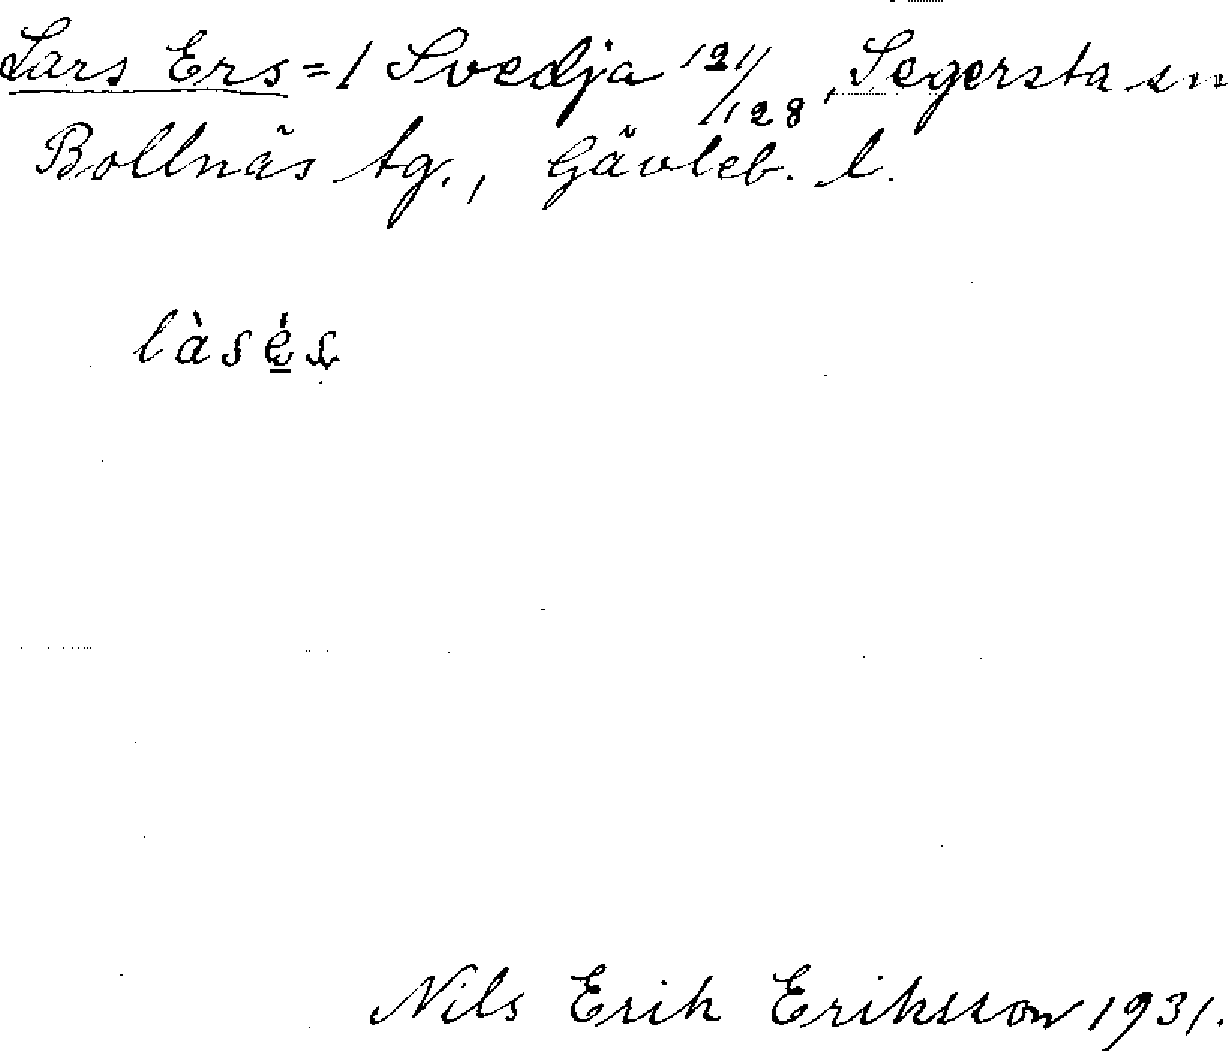 Lars Ers = / Svedja 12¹¹/128, Segersta sn
Bollnäs tg., Gävleb. l.
làsés
Nils Erik Eriksson 1931.